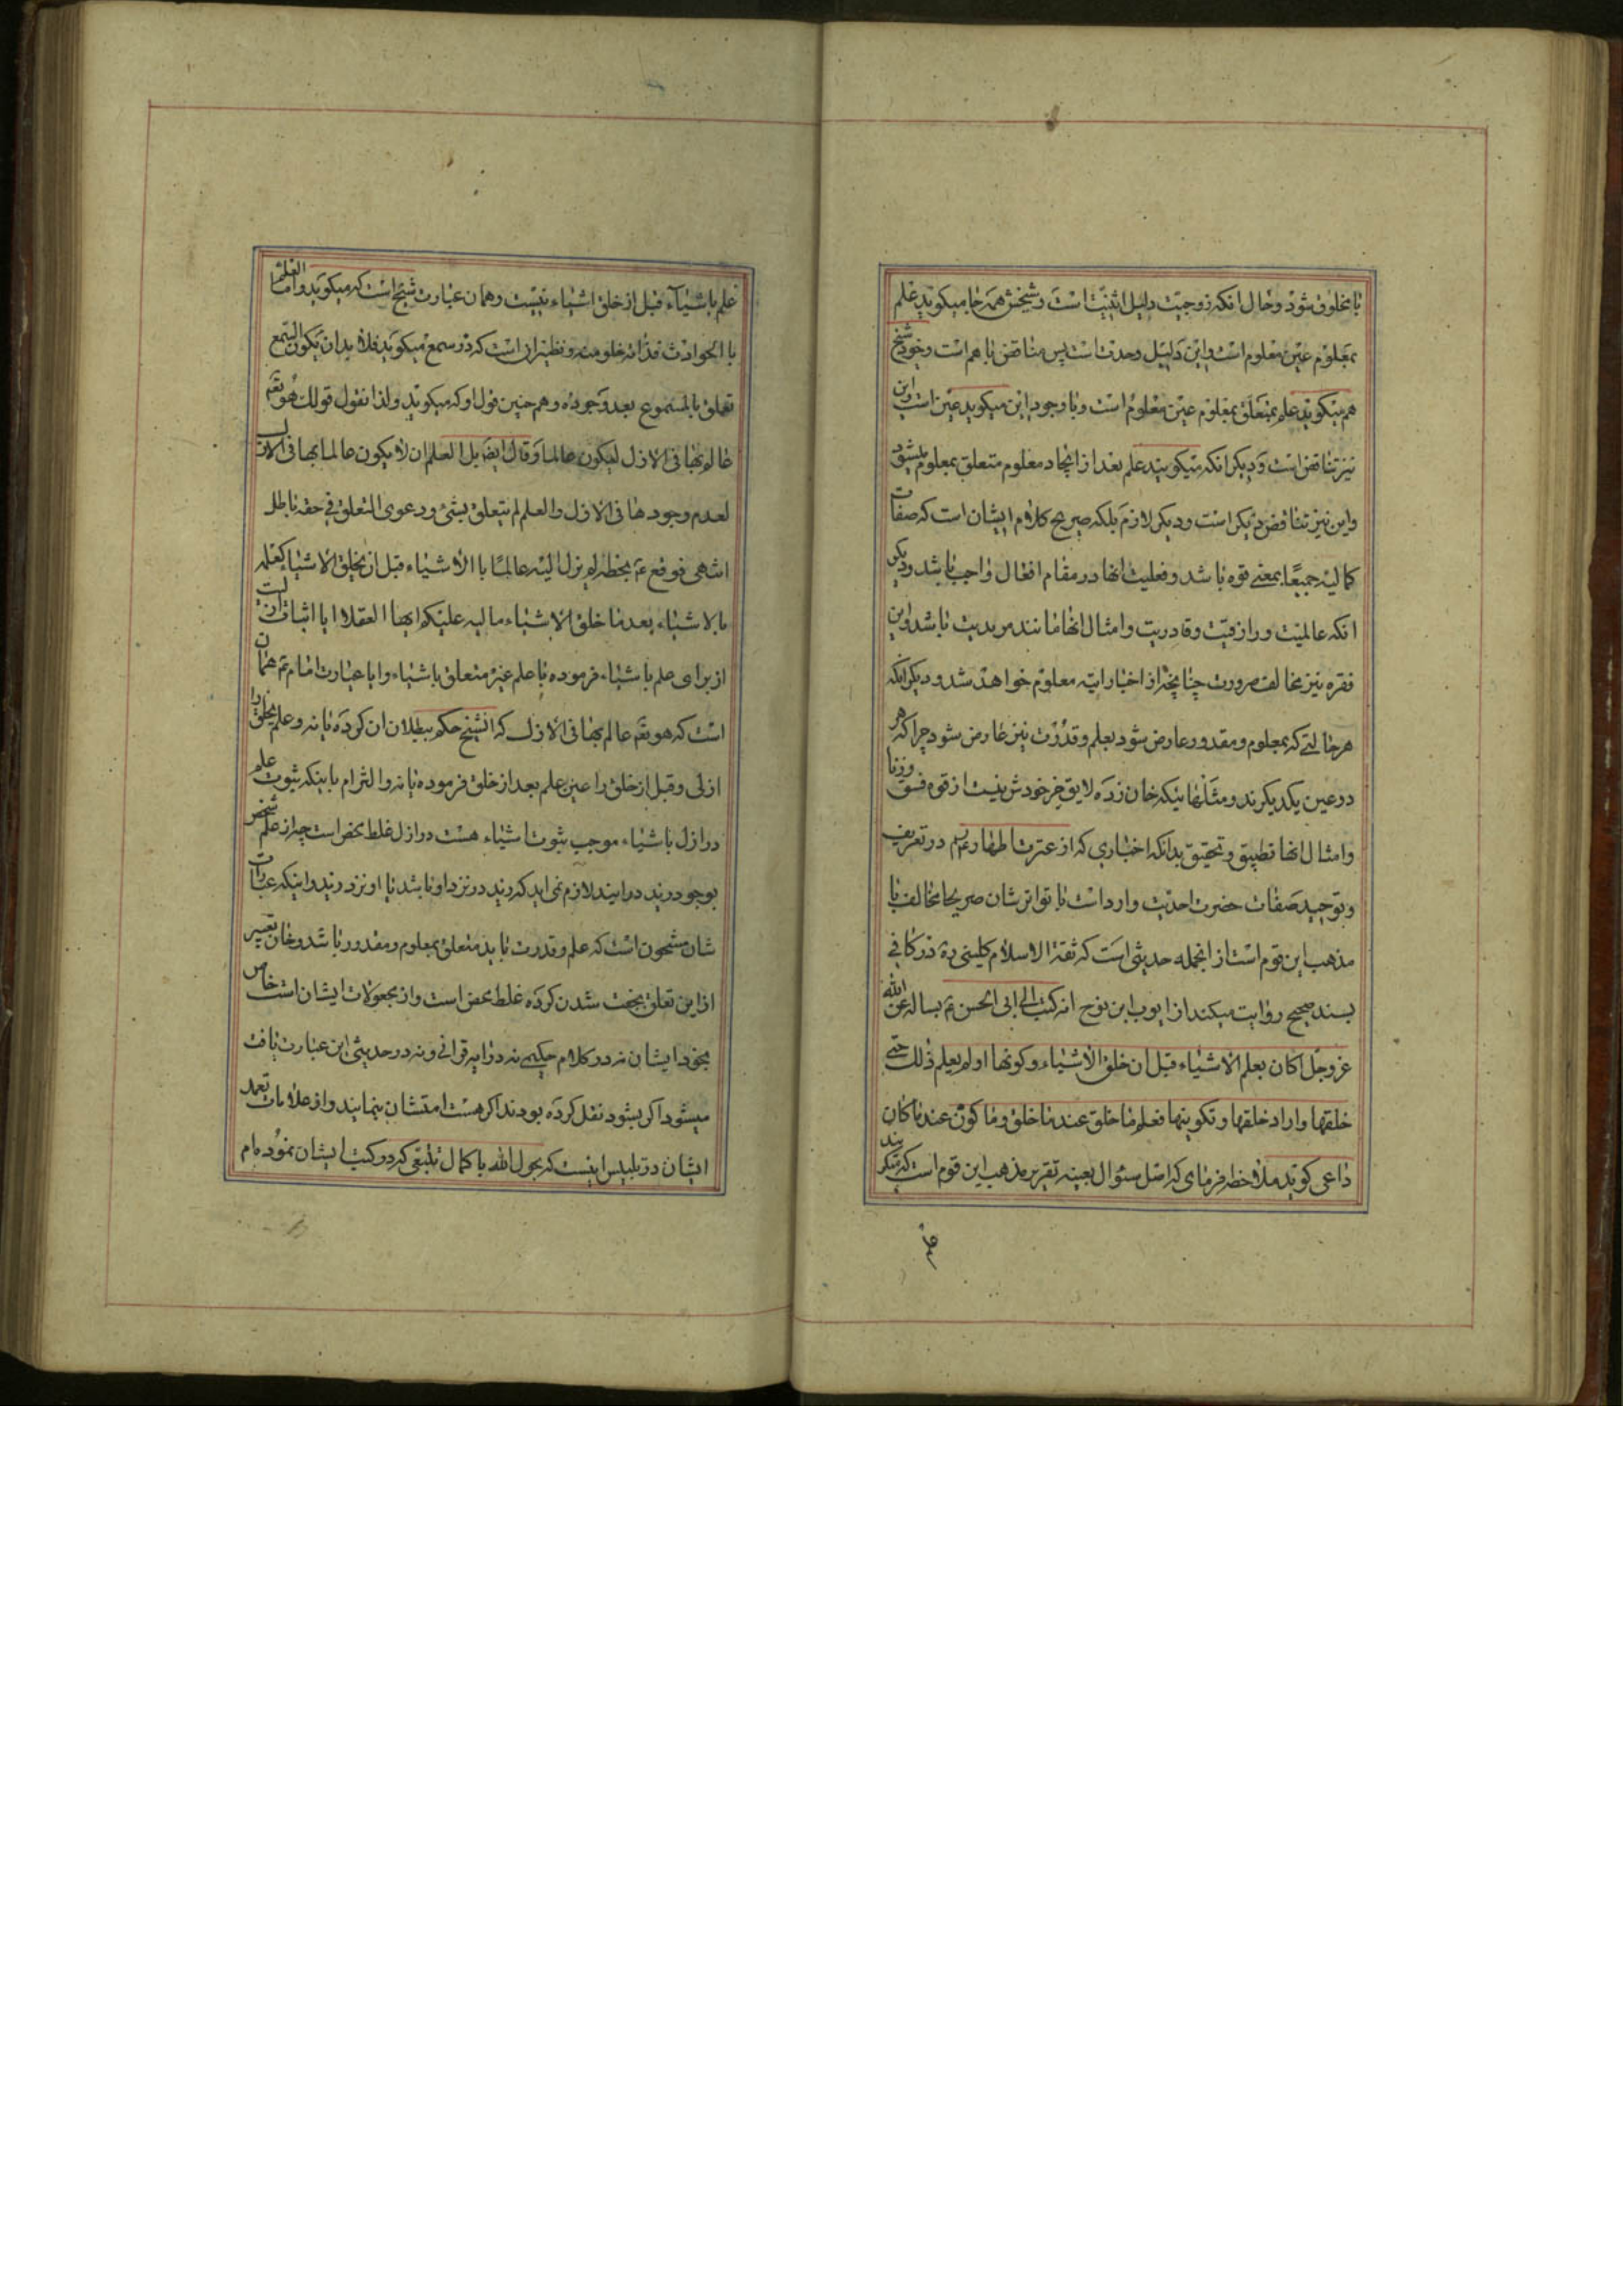 با مخلوق شود و حال انکه زوجیت دلیل اثنیّت است و شیخش همه جا میکوید علم
بمعلوم عین معلوم است و این دلیل وحدت است پس متناقض با هم است و خود شیخ
هم میکوید علم متعلق بمعلوم عین معلوم است و با وجود این میکوید عین است و این
نیز تناقض است و دیکر انکه میکویند علم بعد از ایجاد معلوم متعلق بمعلوم میشود
و این نیز تناقض دیکر است و دیکر لازم بلکه صریح کلام ایشان است که صفات
کمالیه جمیعًا بمعنی قوه باشد و فعلیت انها در مقام افعال واجب باشد و دیکر
انکه عالمیّت و رازقیّت و قادریت و امثال انها مانند مریدیت باشد و این
فقره نیز مخالف ضرورت چنانچه از اخبار اتیه معلوم خواهد شد و دیکر انکه
هر حالتی که بمعلوم و مقدور عارض شود بعلم و قدرت نیز عارض شود چرا که هر
دو عین یکدیکرند و مثالهائیکه خان زده لایق خودش نیست از قوه فسق و زنا
و امثال انها تطبیق و تحقیق بدانکه اخباری که از عترت اطهار در تعریف
و توحید صفات حضرت احدیّت وارد است با تواترشان صریحا مخالف با
مذهب این قوم است از انجمله حدیثی است که ثقة الاسلام کلینی ره در کافی
بسند صحیح روایت میکند از ایوب ابن نوح انه کتب الی ابی الحسن ع یساله عن الله
عز وجل اکان یعلم الاشیاء قبل ان خلق الاشیاء و کونها او لم یعلم ذلک حتی
خلقها و اراد خلقها و تکوینها فعلم ما خلق عند ما خلق و ما کون عند ما کان
داعی کوید ملاحظه فرمای که اصل سئوال بعینه تقریر مذهب این قوم است که منکرند
علم
علم باشیاء قبل از خلق اشیاء نیست و همان عبارت شیخ است که میکوید و اما العلم
با الحوادث فذاته خلو منه و نظیر ان است که در سمع میکوید فلا بد ان یکون السمع
تعلق بالمسموع بعد وجوده و هم چنین قول او که میکوید و لذا نقول قولک هو تع
عالم بها فی الازل لیکون عالما و قال ایضا بل العلم ان لا یکون عالما بها فی الازل
لعدم وجودها فی الازل و العلم لم یتعلق بشیء و دعوی التعلق فی حقه باطل
انتهی فوقع ع بخطه لم یزل الله عالمًا با الاشیاء قبل ان یخلق الاشیاء کعلمه
بالاشیاء بعد ما خلق الاشیاء علیکم ایها العقلا ایا اثبات
از برای علم باشیاء فرموده یا علم غیر متعلق باشیاء و ایا عبارت امام ع همان
است که هو تع عالم بها فی الازل که شیخ حکم ببطلان ان کرده یا نه و علم بخلق را
ازلی و قبل از خلق را عین علم بعد از خلق فرموده یا نه و التزام باینکه ثبوت علم
در ازل باشیاء موجب ثبوت اشیاء هست در ازل غلط محض است چه از علم شخص
بوجود زید در لازم نمی اید که زید در نزد او باشد یا او نزد زید و اینکه عبارات
شان مشحون است که علم و قدرت باید متعلق بمعلوم و مقدور باشد و خان تعبیر
از این تعلق بجفت شدن کرده غلط محض است و از مجعولات ایشان است خاص
بخود ایشان نه در کلام حکیمی نه در ایه قرانی و نه در حدیثی این عبارت یافت
میشود اکر بشود نقل کرده بودند اکر هست امتشان بنمایند و از علامات تعمد
ایشان در تلبیس اینست که بحول الله با کمال که در کتب ایشان نموده ام